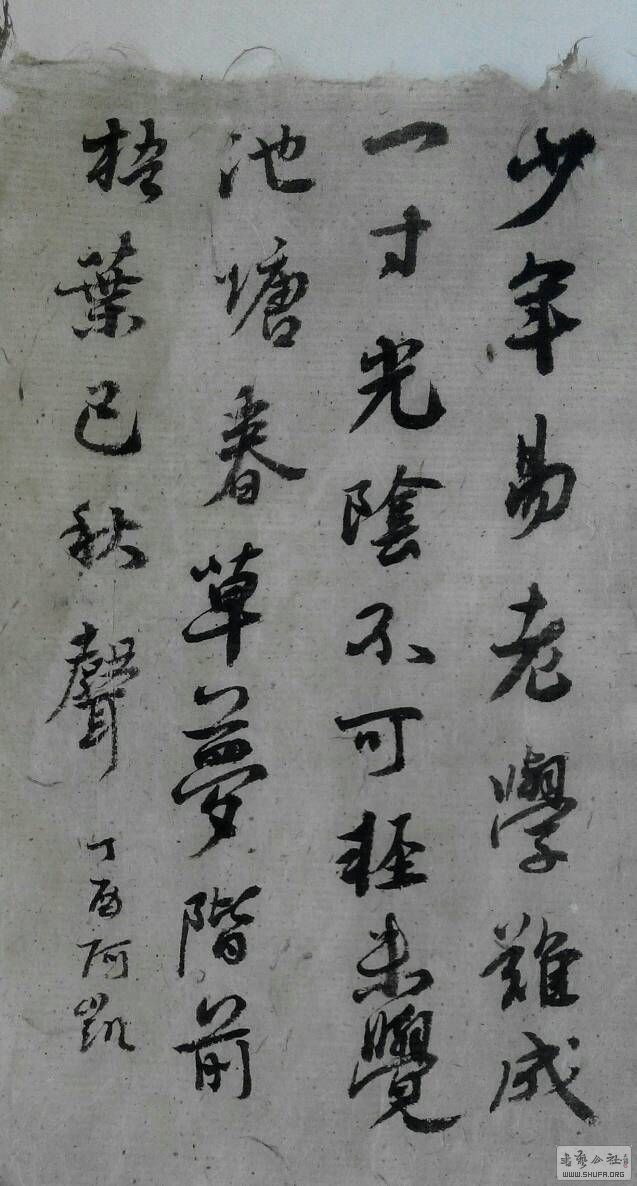 少年易老學難成
一寸光陰不可輕未覺
池塘春草夢階前
梧葉已秋聲
丁酉阿凱
書藝公社
WWW.SHUFA.ORG